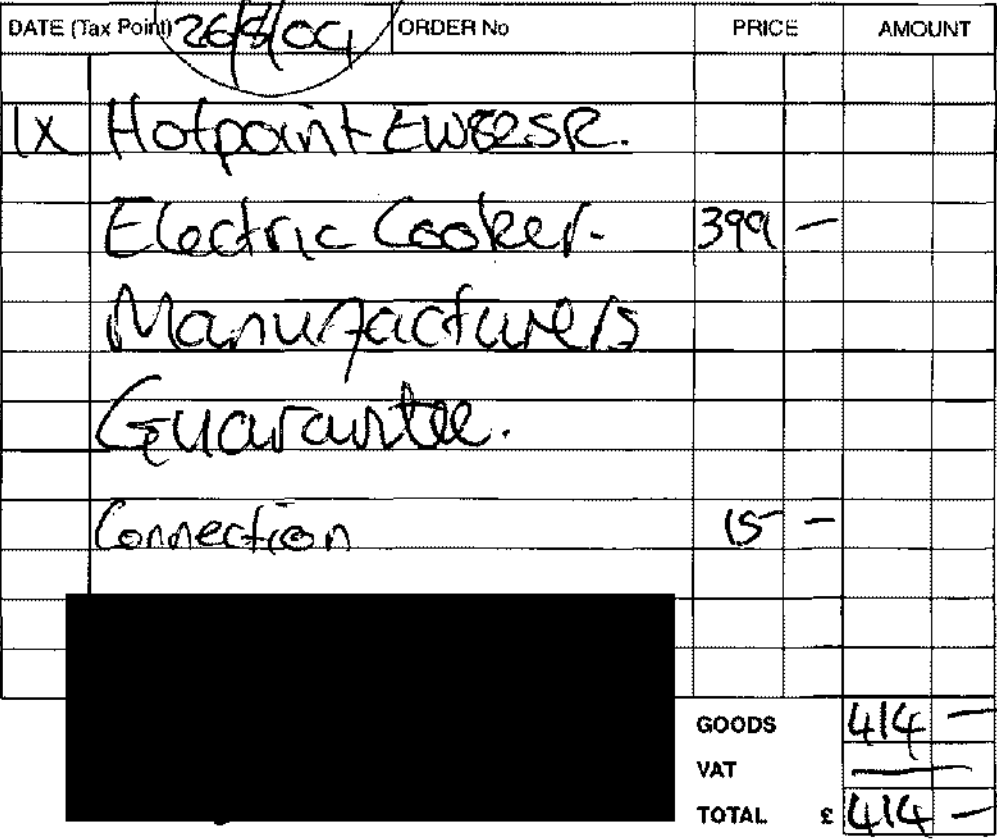 DATE (Tax Point) 26/8/04 ORDER No PRICE AMOUNT
1X Hotpoint EW82SR.
Electric Cooker. 399 –
Manufacturers
Guarantee.
Connection 15 –
GOODS 414 –
VAT –
TOTAL £ 414 –